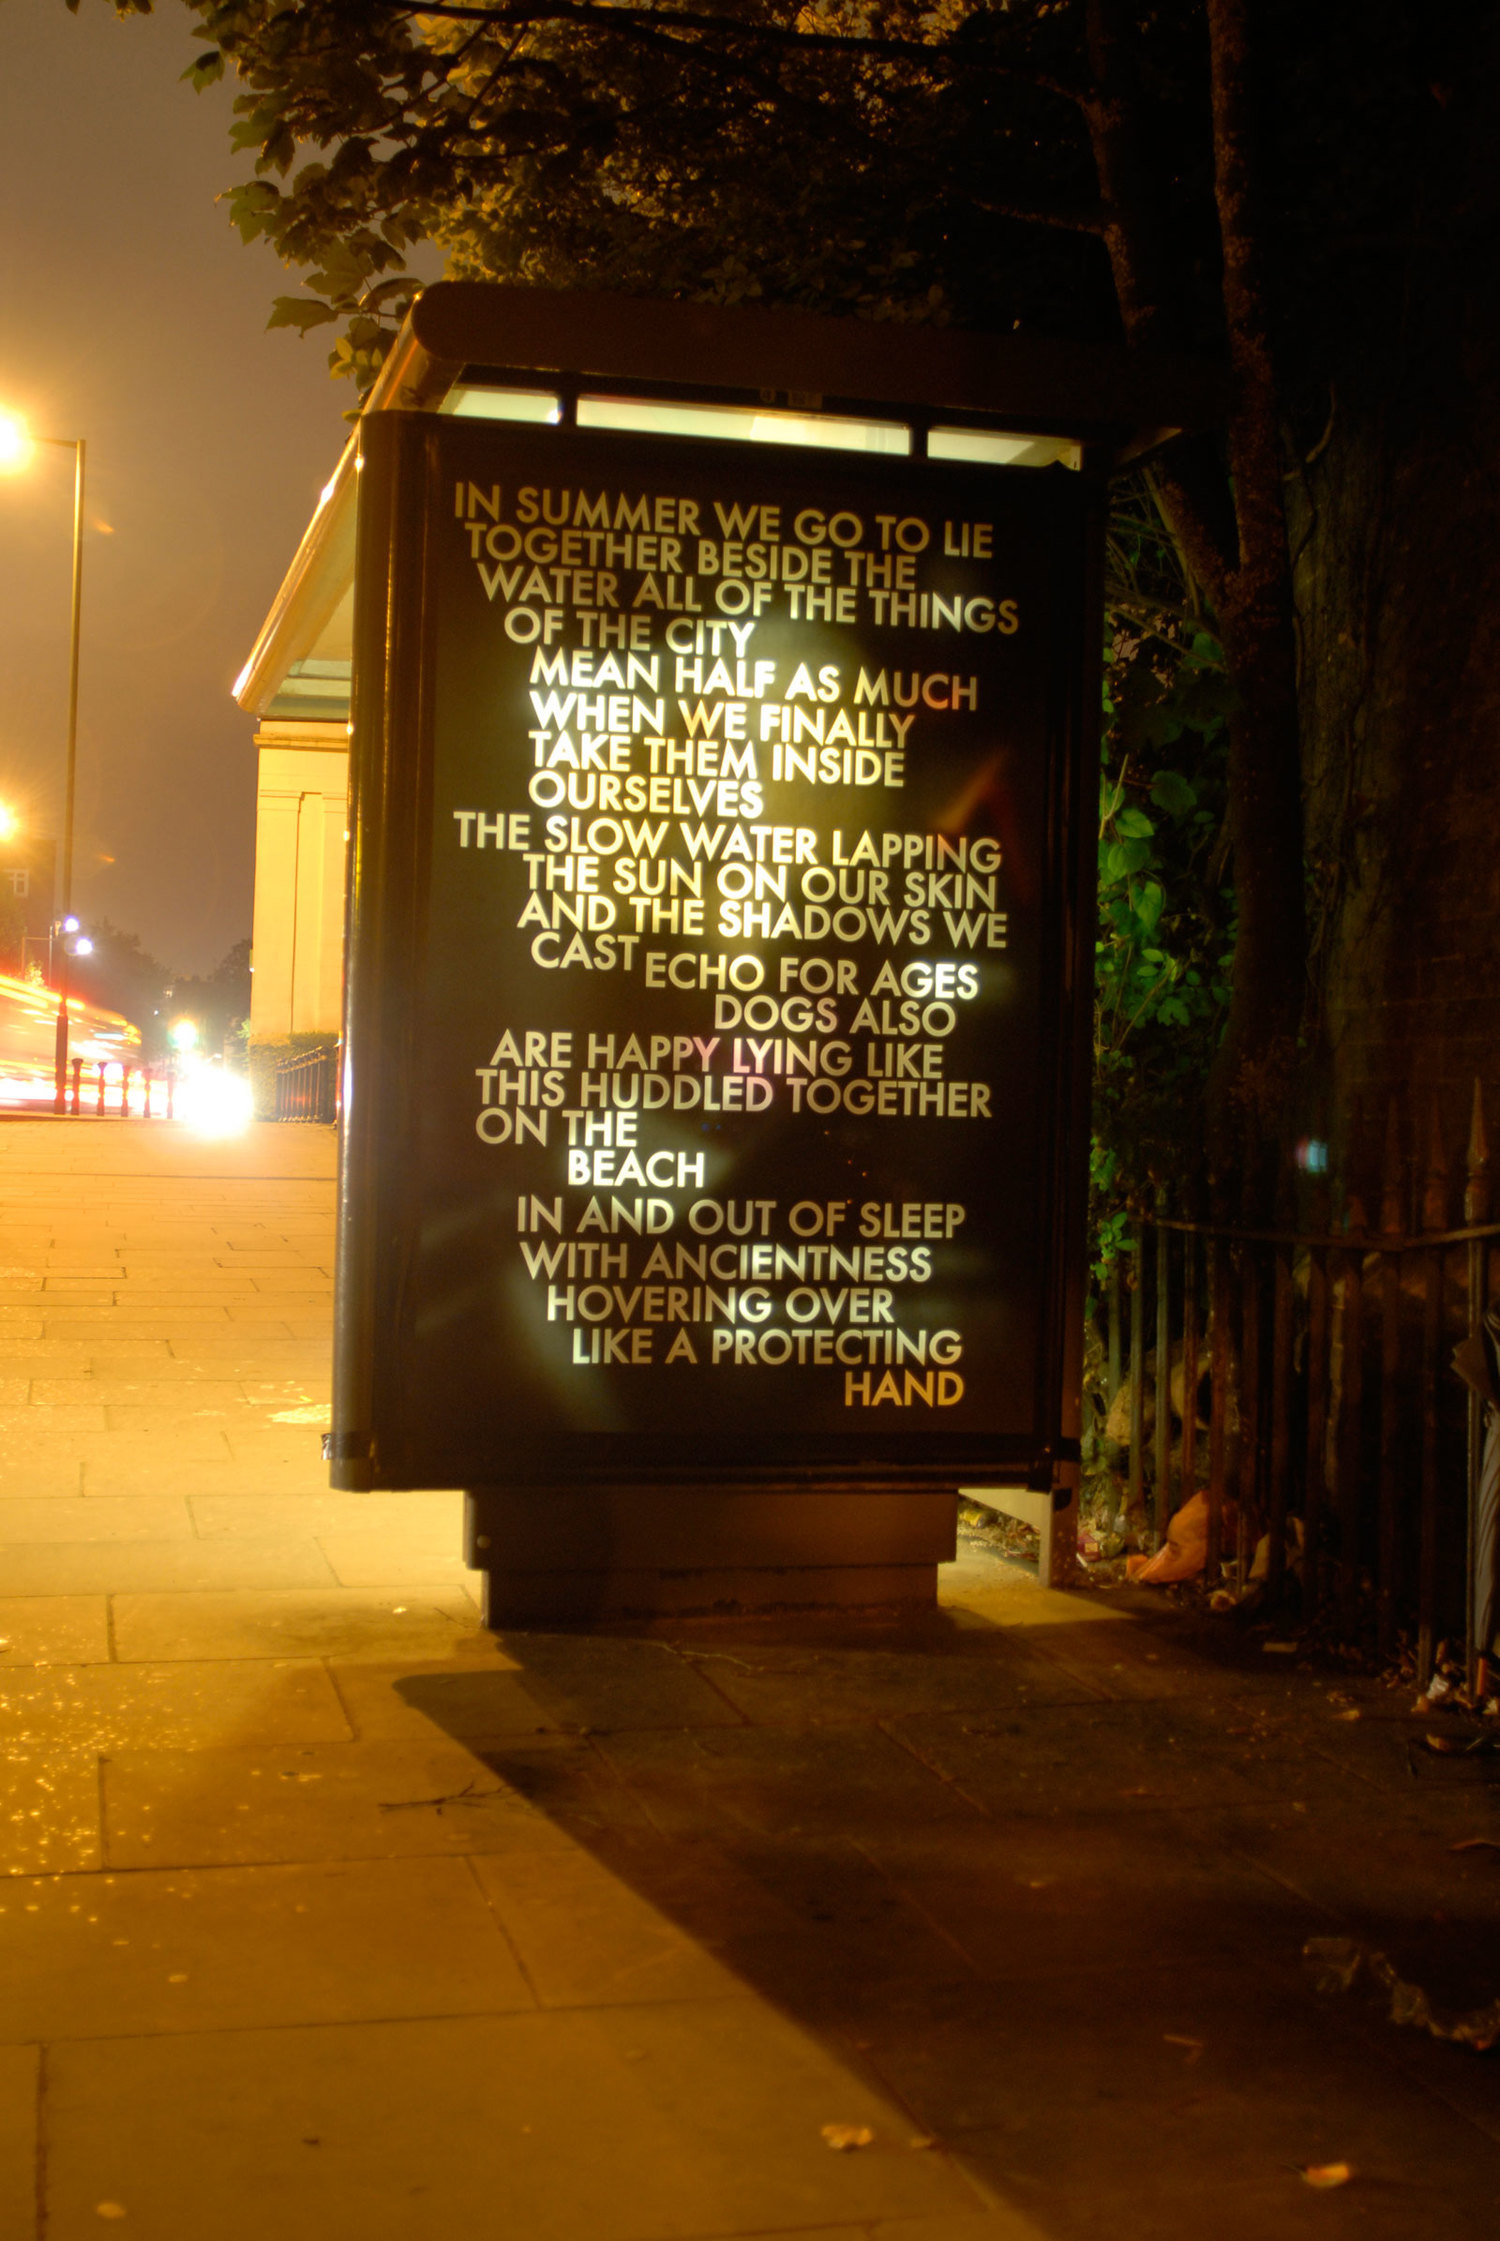 IN SUMMER WE GO TO LIE
TOGETHER BESIDE THE
WATER ALL OF THE THINGS
OF THE CITY
MEAN HALF AS MUCH
WHEN WE FINALLY
TAKE THEM INSIDE
OURSELVES
THE SLOW WATER LAPPING
THE SUN ON OUR SKIN
AND THE SHADOWS WE
CAST ECHO FOR AGES
DOGS ALSO
ARE HAPPY LYING LIKE
THIS HUDDLED TOGETHER
ON THE
BEACH
IN AND OUT OF SLEEP
WITH ANCIENTNESS
HOVERING OVER
LIKE A PROTECTING
HAND